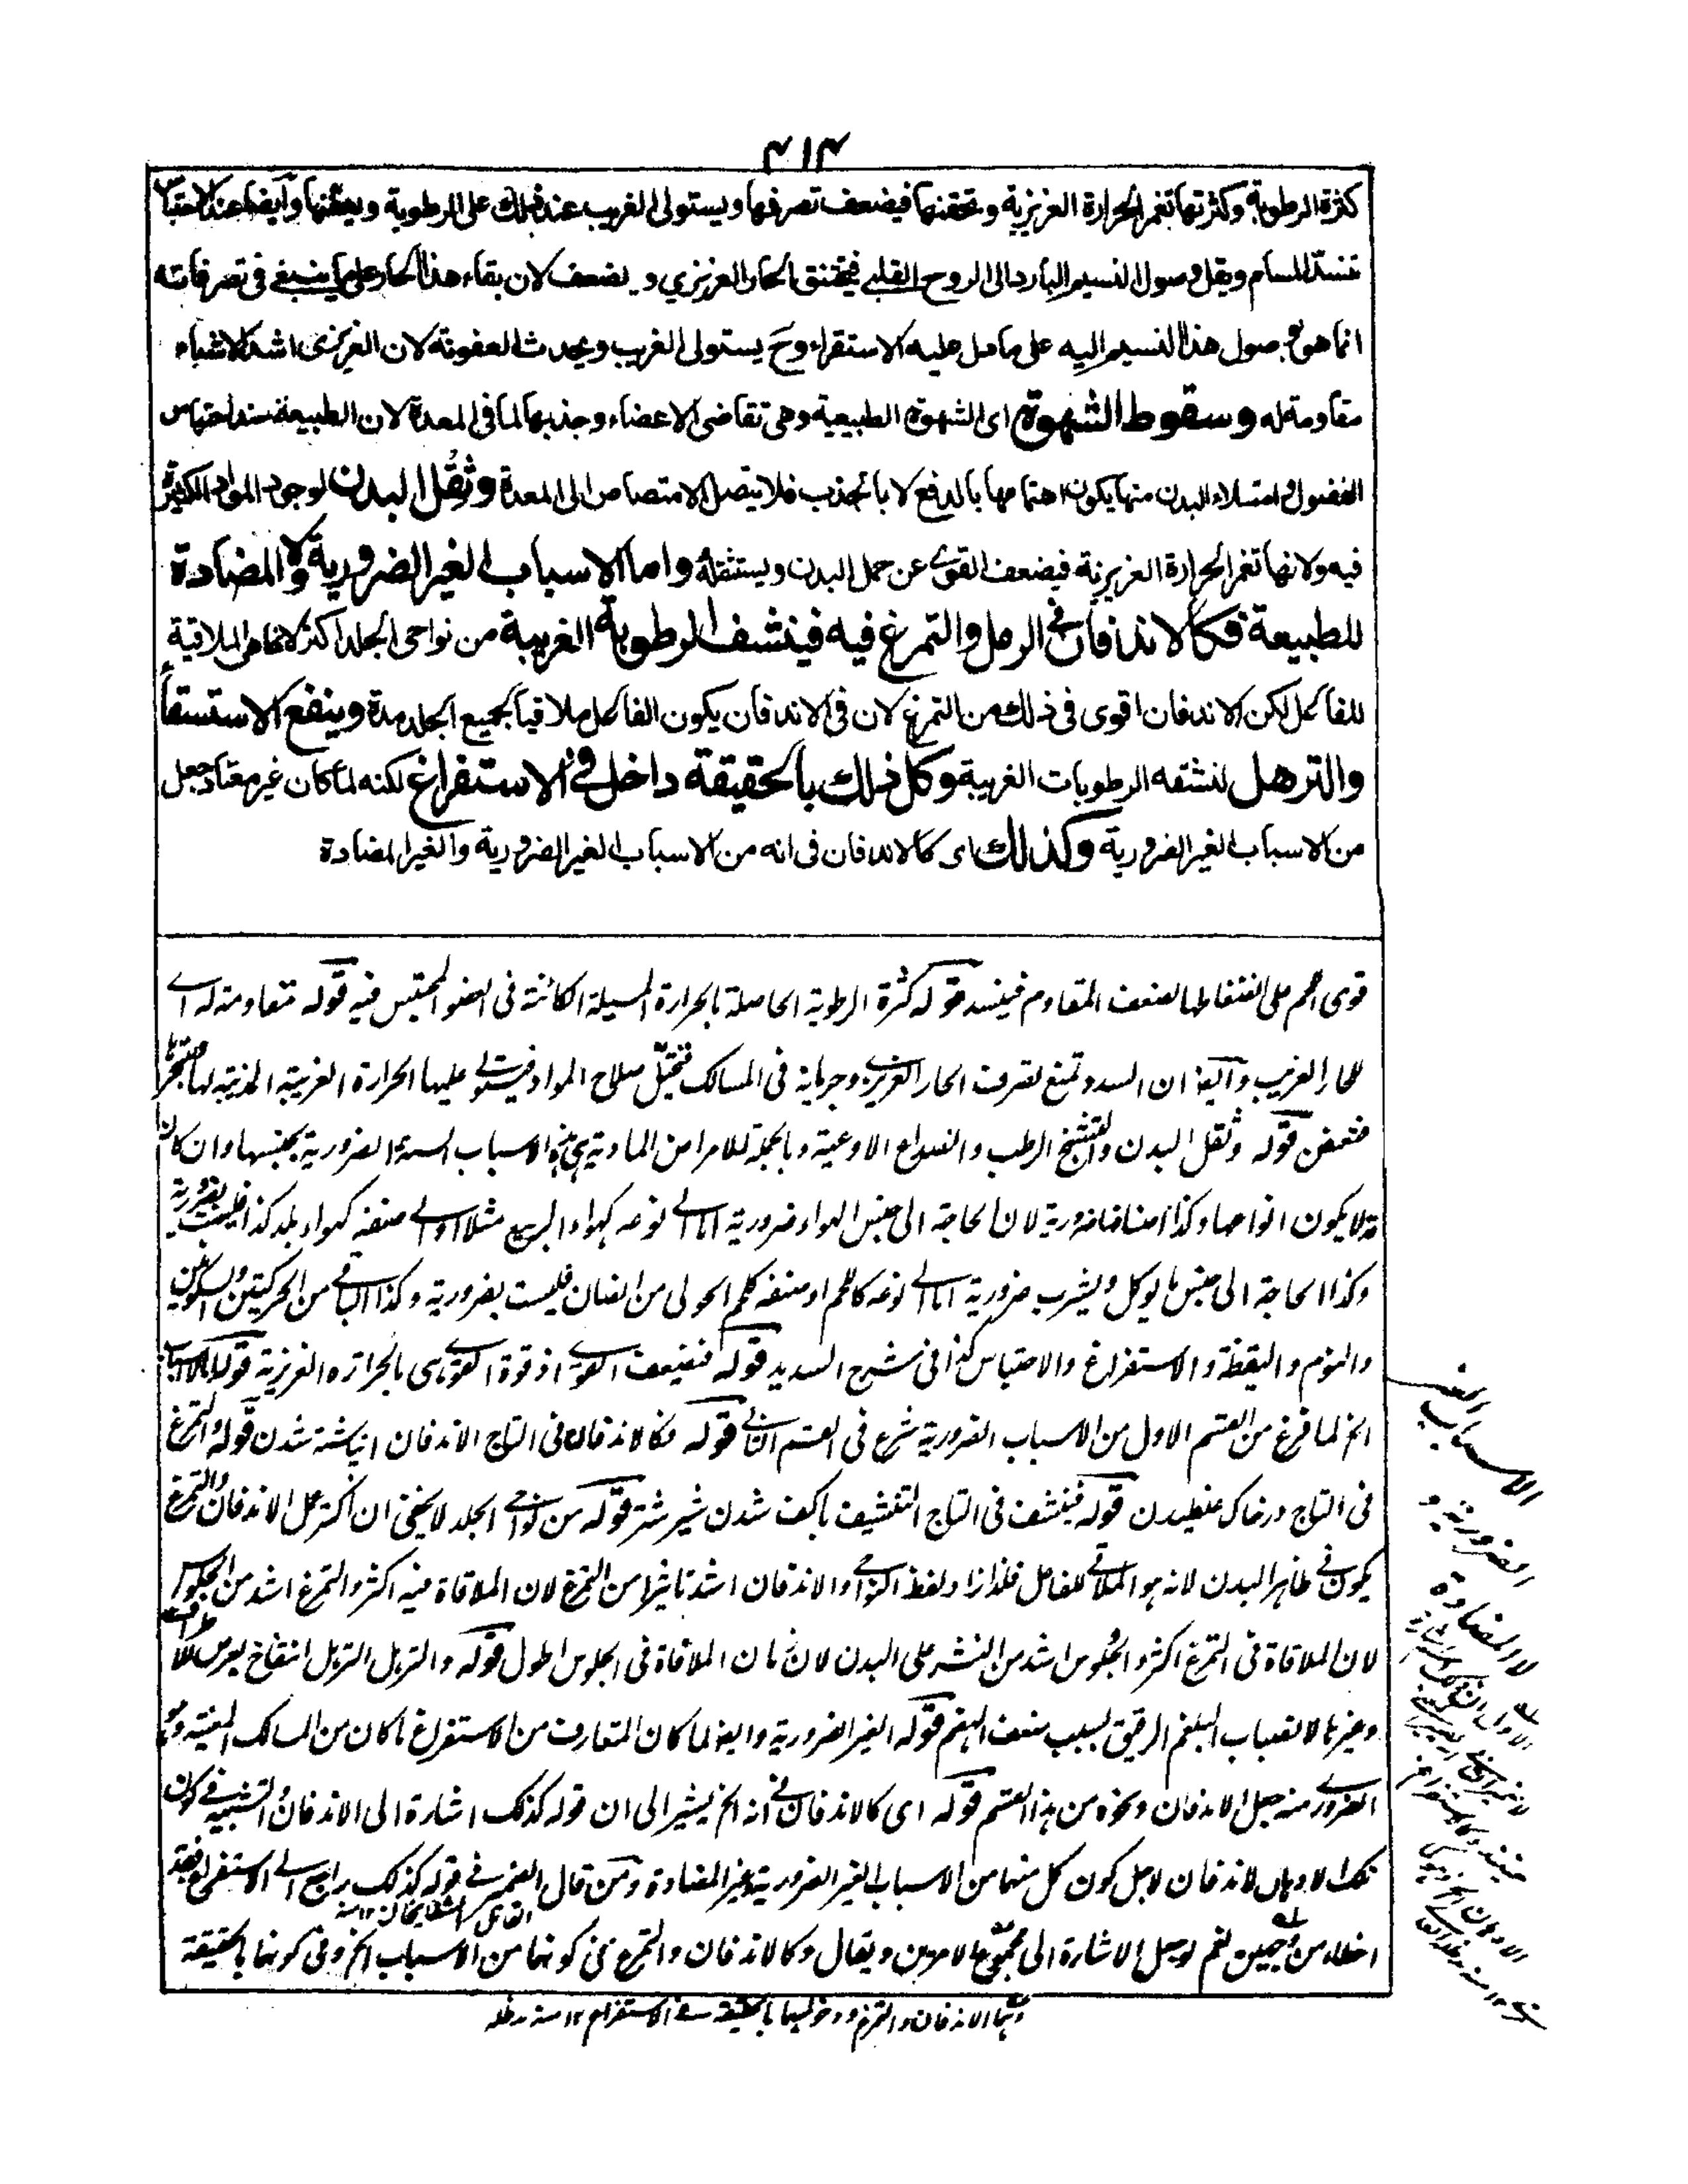 ٣١٣
كثرة الرطوبة وكثرتها تغمر الحرارة الغريزية وتحقنها فيضعف تصرفها ويستولى الغريب عند ذلك على الرطوبة ويعفنها وأيضا عند الاحتباس
تنسد المسام ويقل وصول النسيم البارد الى الروح القلبے فيختنق الحار الغريزي ويضعف لان بقاء هذا الحار على ما ينبغے فى تصرفاته
انما هو بوصول هذا النسيم اليه على ما دل عليه الاستقراء وح يستولى الغريب ويحدث العفونة لان الغريزى اشد الاشياء
مقاومة له وسقوط الشهوة اى الشهوة الطبيعية وهى تقاضى الاعضاء وجذبها لما فى المعدة لان الطبيعة عند احتباس
الفضول وامتلاء البدن منها يكون اهتمامها بالدفع لا بالجذب فلا يتصل الامتصاص الى المعدة وثقل البدن لوجود المواد الكثيرة
فيه ولانها تغمر الحرارة الغريزية فيضعف القوى عن حمل البدن ويستثقله واما الاسباب الغير الضرورية ولا المضادة
للطبيعة فكالاندفان فى الرمل والتمرغ فيه فينشف الرطوبة الغريبة من نواحى الجلد اكثر لانها هى الملاقية
للفاعل لكن الاندفان اقوى فى ذلك من التمرغ لان فى الاندفان يكون الفاعل ملاقيا لجميع الجلد مدة وينفع الاستسقاء
والترهل لنشفه الرطوبات الغريبة وكل ذلك بالحقيقة داخل فى الاستفراغ لكنه لما كان غير معتاد جعل
من الاسباب الغير الضرورية وكذلك اى كالاندفان فى انه من الاسباب الغير الضرورية والغير المضادة
قوى الجسم على لضعف المقاوم فيفسد قوله كثرة الرطوبة الحاصلة بالحرارة المسيلة الكائنة فى العضو المحتبس فيه قوله مقاومة له اے
للحار الغريب وايضا ان السدد تمنع تصرف الحار الغريزے وجريانه فى المسالك فيختل صلاح المواد فيستولے عليها الحرارة الغريبة المذيبة لها
فتعفن قوله وثقل البدن والتشنج الرطب وانصداع الاوعية وبالجملة للامراض المادية هذه الاسباب الستة الضرورية بجنسها وان كان
قد لا يكون انواعها وكذا اصنافها ضرورية لان الحاجة الى جنس الهواء ضرورية اما الے نوعه كهواء الربيع مثلا او الے صنفه كهواء بلد كذا فليست بضرورية
وكذا الحاجة الى جنس ما يوكل ويشرب ضرورية اما الے نوعه كاللحم او صنفه كلحم الحولى من الضان فليست بضرورية وكذا الباقے من الحركتين والسكونين
والنوم واليقظة والاستفراغ والاحتباس كذا فى شرح السديد قوله فيضعف القوے اذ قوة القوے بالحرارة الغريزية قوله واما الاسباب
الخ لما فرغ من القسم الاول من الاسباب الضرورية شرع فى القسم الثانے قوله فكالاندفان فى التاج الاندفان انباشته شدن قوله والتمرغ
فى التاج در خاك غلطيدن قوله فينشف فى التاج التنشيف قوله من نواحے الجلد لا يخفى ان اكثر عمل الاندفان والتمرغ
يكون فے ظاهر البدن لانه هو الملاقے للفاعل فلذا زاد لفظ النواحے والاندفان اشد تاثيرا من التمرغ لان الملاقاة فيه اكثر والتمرغ اشد من الجلوس
لان الملاقاة فى التمرغ اكثر والجلوس اشد من النشر على البدن لان زمان الملاقاة فى الجلوس اطول قوله والترهل الترهل انتفاخ يعرض للاطراف
وغيرها لانصباب البلغم الرقيق بسبب ضعف الهضم قوله الغير الضرورية وايضا لما كان المتعارف من الاستفراغ ما كان من المسالك المعينة
الضرورے منه جعل الاندفان ونحوه من هذا القسم قوله اى كالاندفان فے انه الخ يشير الى ان قوله كذلك اشارة الى الاندفان والتشبيه فے كون
تلك الادهان لاندفان لاجل كون كل منها من الاسباب الغير الضرورية وغير المضادة ومن قال الضمير فے قوله كذلك راجع الے الاستفراغ فقد
اخطا من وجهين نعم لو جعل الاشارة الى مجموع الامرين ويقال وكالاندفان والتمرغ فى كونها من الاسباب الخ وفى كونها بالحقيقة
وهما الاندفان والتمرغ ودخولهما بالحقيقة فے الاستفراغ ١٢ منه مدظله